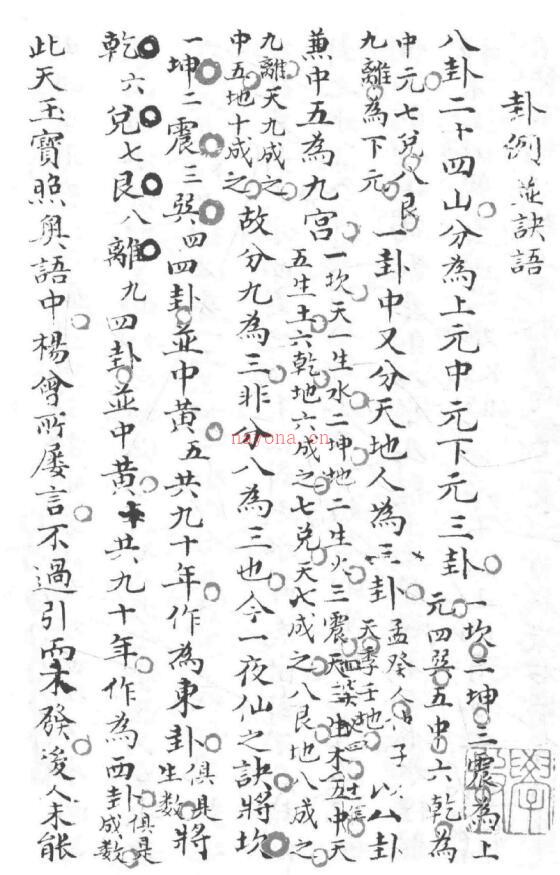 卦例並訣語
八卦二十四山分為上元中元下元三卦一坎二坤三震為上
元四巽五中六乾為
中元七兌八艮
九離為下元
一卦中又分天地人為三卦
以八卦
兼中五為九宮
一坎天一生水二坤地二生火三震天三生木五中天
五生土六乾地六成之七兌天七成之八艮地八成之
九離天九成之
中五地十成之
故分九為三非分八為三也今一夜仙之訣將坎
一坤二震三巽四四卦並中黃五共九十年作為東卦俱是生數將
乾六兌七艮八離九四卦並中黃十共九十年作為西卦俱是成數
此天玉寶照奧語中楊曾所屡言不過引而未發後人未能
nayona.cn